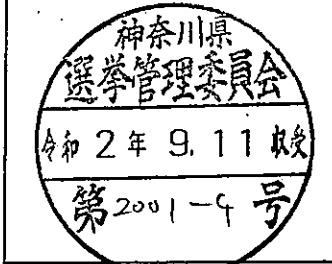 神奈川県
選挙管理委員会
令和 2年 9.11 収受
第2001-4号